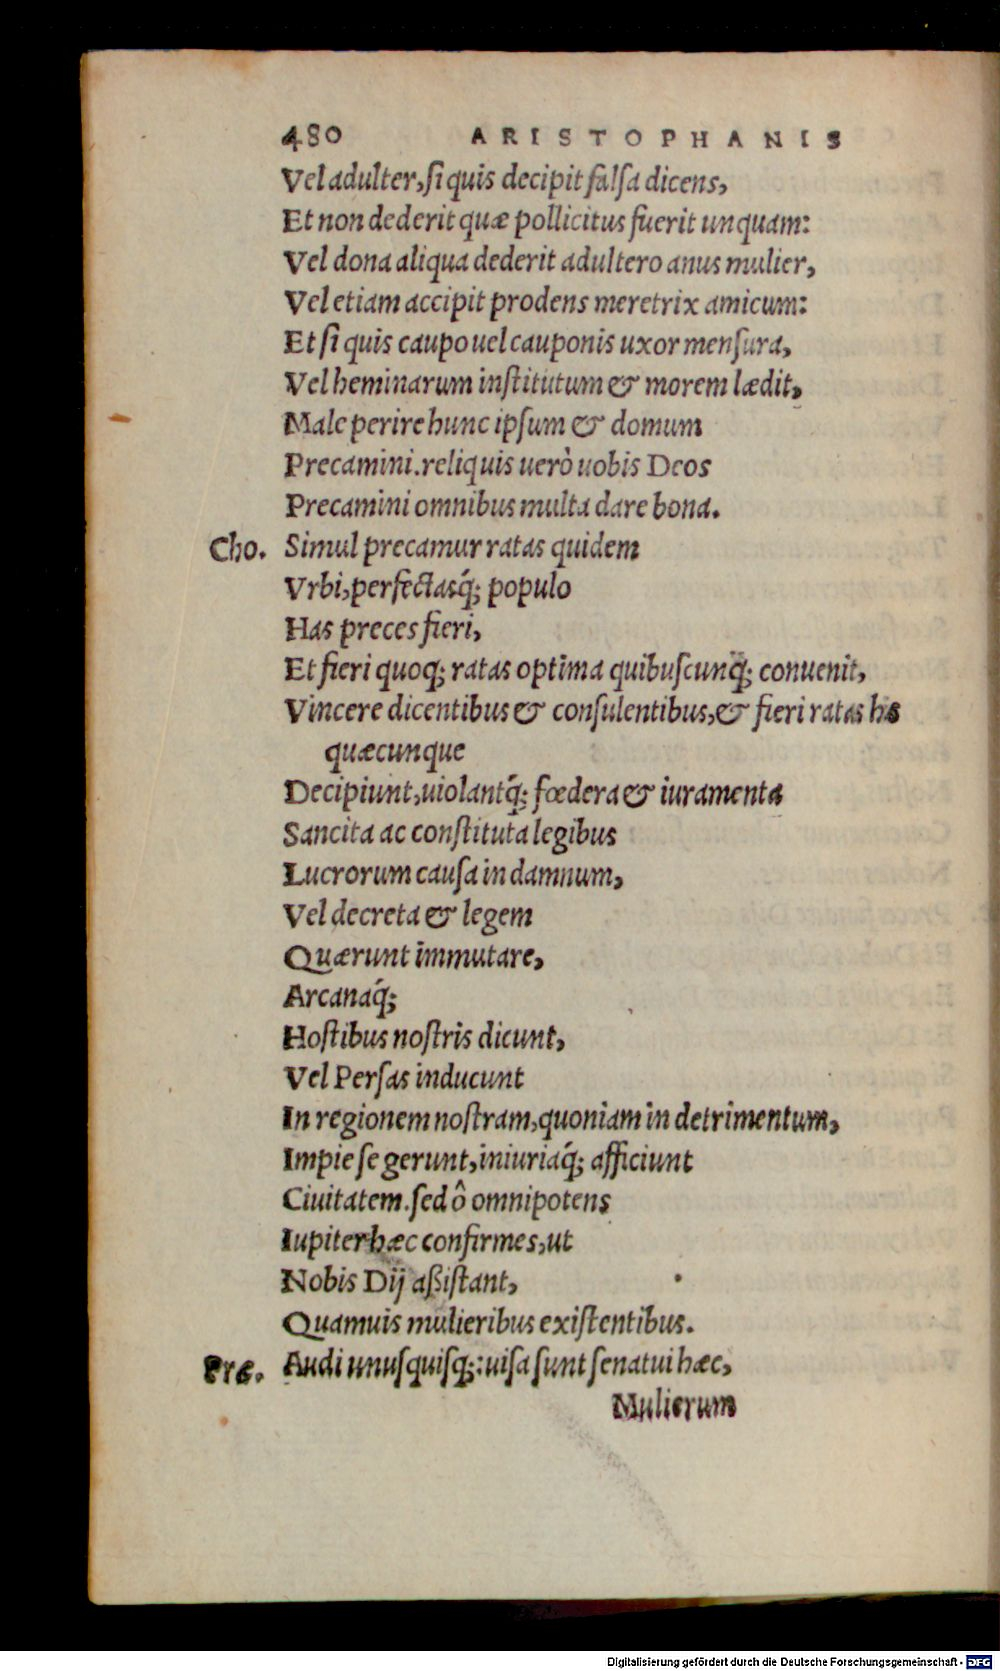 480 ARISTOPHANIS
Vel adulter, ſi quis decipit falſa dicens,
Et non dederit quæ pollicitus fuerit unquam:
Vel dona aliqua dederit adultero anus mulier,
Vel etiam accipit prodens meretrix amicum:
Et ſi quis caupo uel cauponis uxor menſura,
Vel heminarum inſtitutum & morem lædit,
Male perire hunc ipſum & domum
Precamini. reliquis uerò uobis Deos
Precamini omnibus multa dare bona.
Cho. Simul precamur ratas quidem
Vrbi, perfectasq́; populo
Has preces fieri,
Et fieri quoq; ratas optima quibuſcunq́; conuenit,
Vincere dicentibus & conſulentibus, & fieri ratas his
quæcunque
Decipiunt, uiolantq́; fœdera & iuramenta
Sancita ac conſtituta legibus
Lucrorum cauſa in damnum,
Vel decreta & legem
Quærunt immutare,
Arcanaq́;
Hoſtibus noſtris dicunt,
Vel Perſas inducunt
In regionem noſtram, quoniam in detrimentum,
Impie ſe gerunt, iniuriaq́; afficiunt
Ciuitatem. ſed ô omnipotens
Iupiter hæc confirmes, ut
Nobis Dij aßiſtant,
Quamuis mulieribus exiſtentibus.
Præ. Audi unuſquiſq;: uiſa ſunt ſenatui hæc,
Mulierum
Digitalisierung gefördert durch die Deutsche Forschungsgemeinschaft - DFG